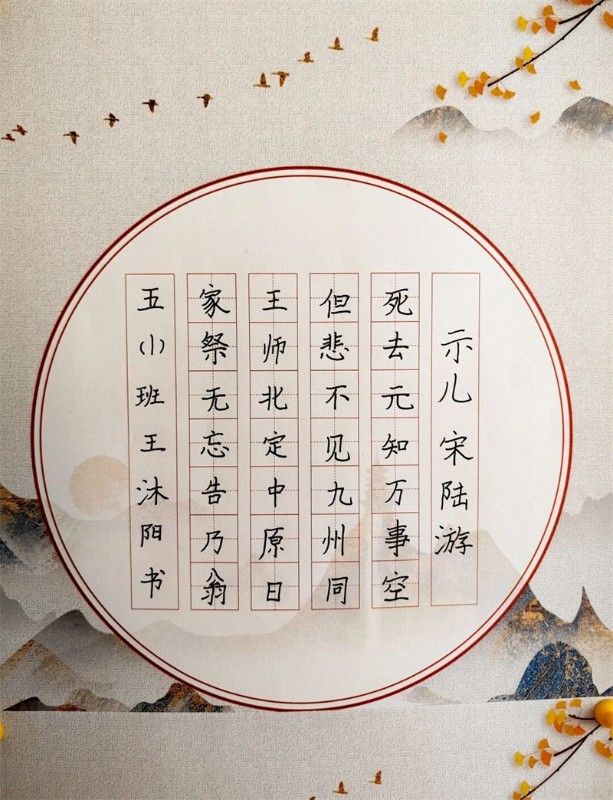 示儿 宋 陆游
死去元知万事空
但悲不见九州同
王师北定中原日
家祭无忘告乃翁
五(1)班王沐阳书